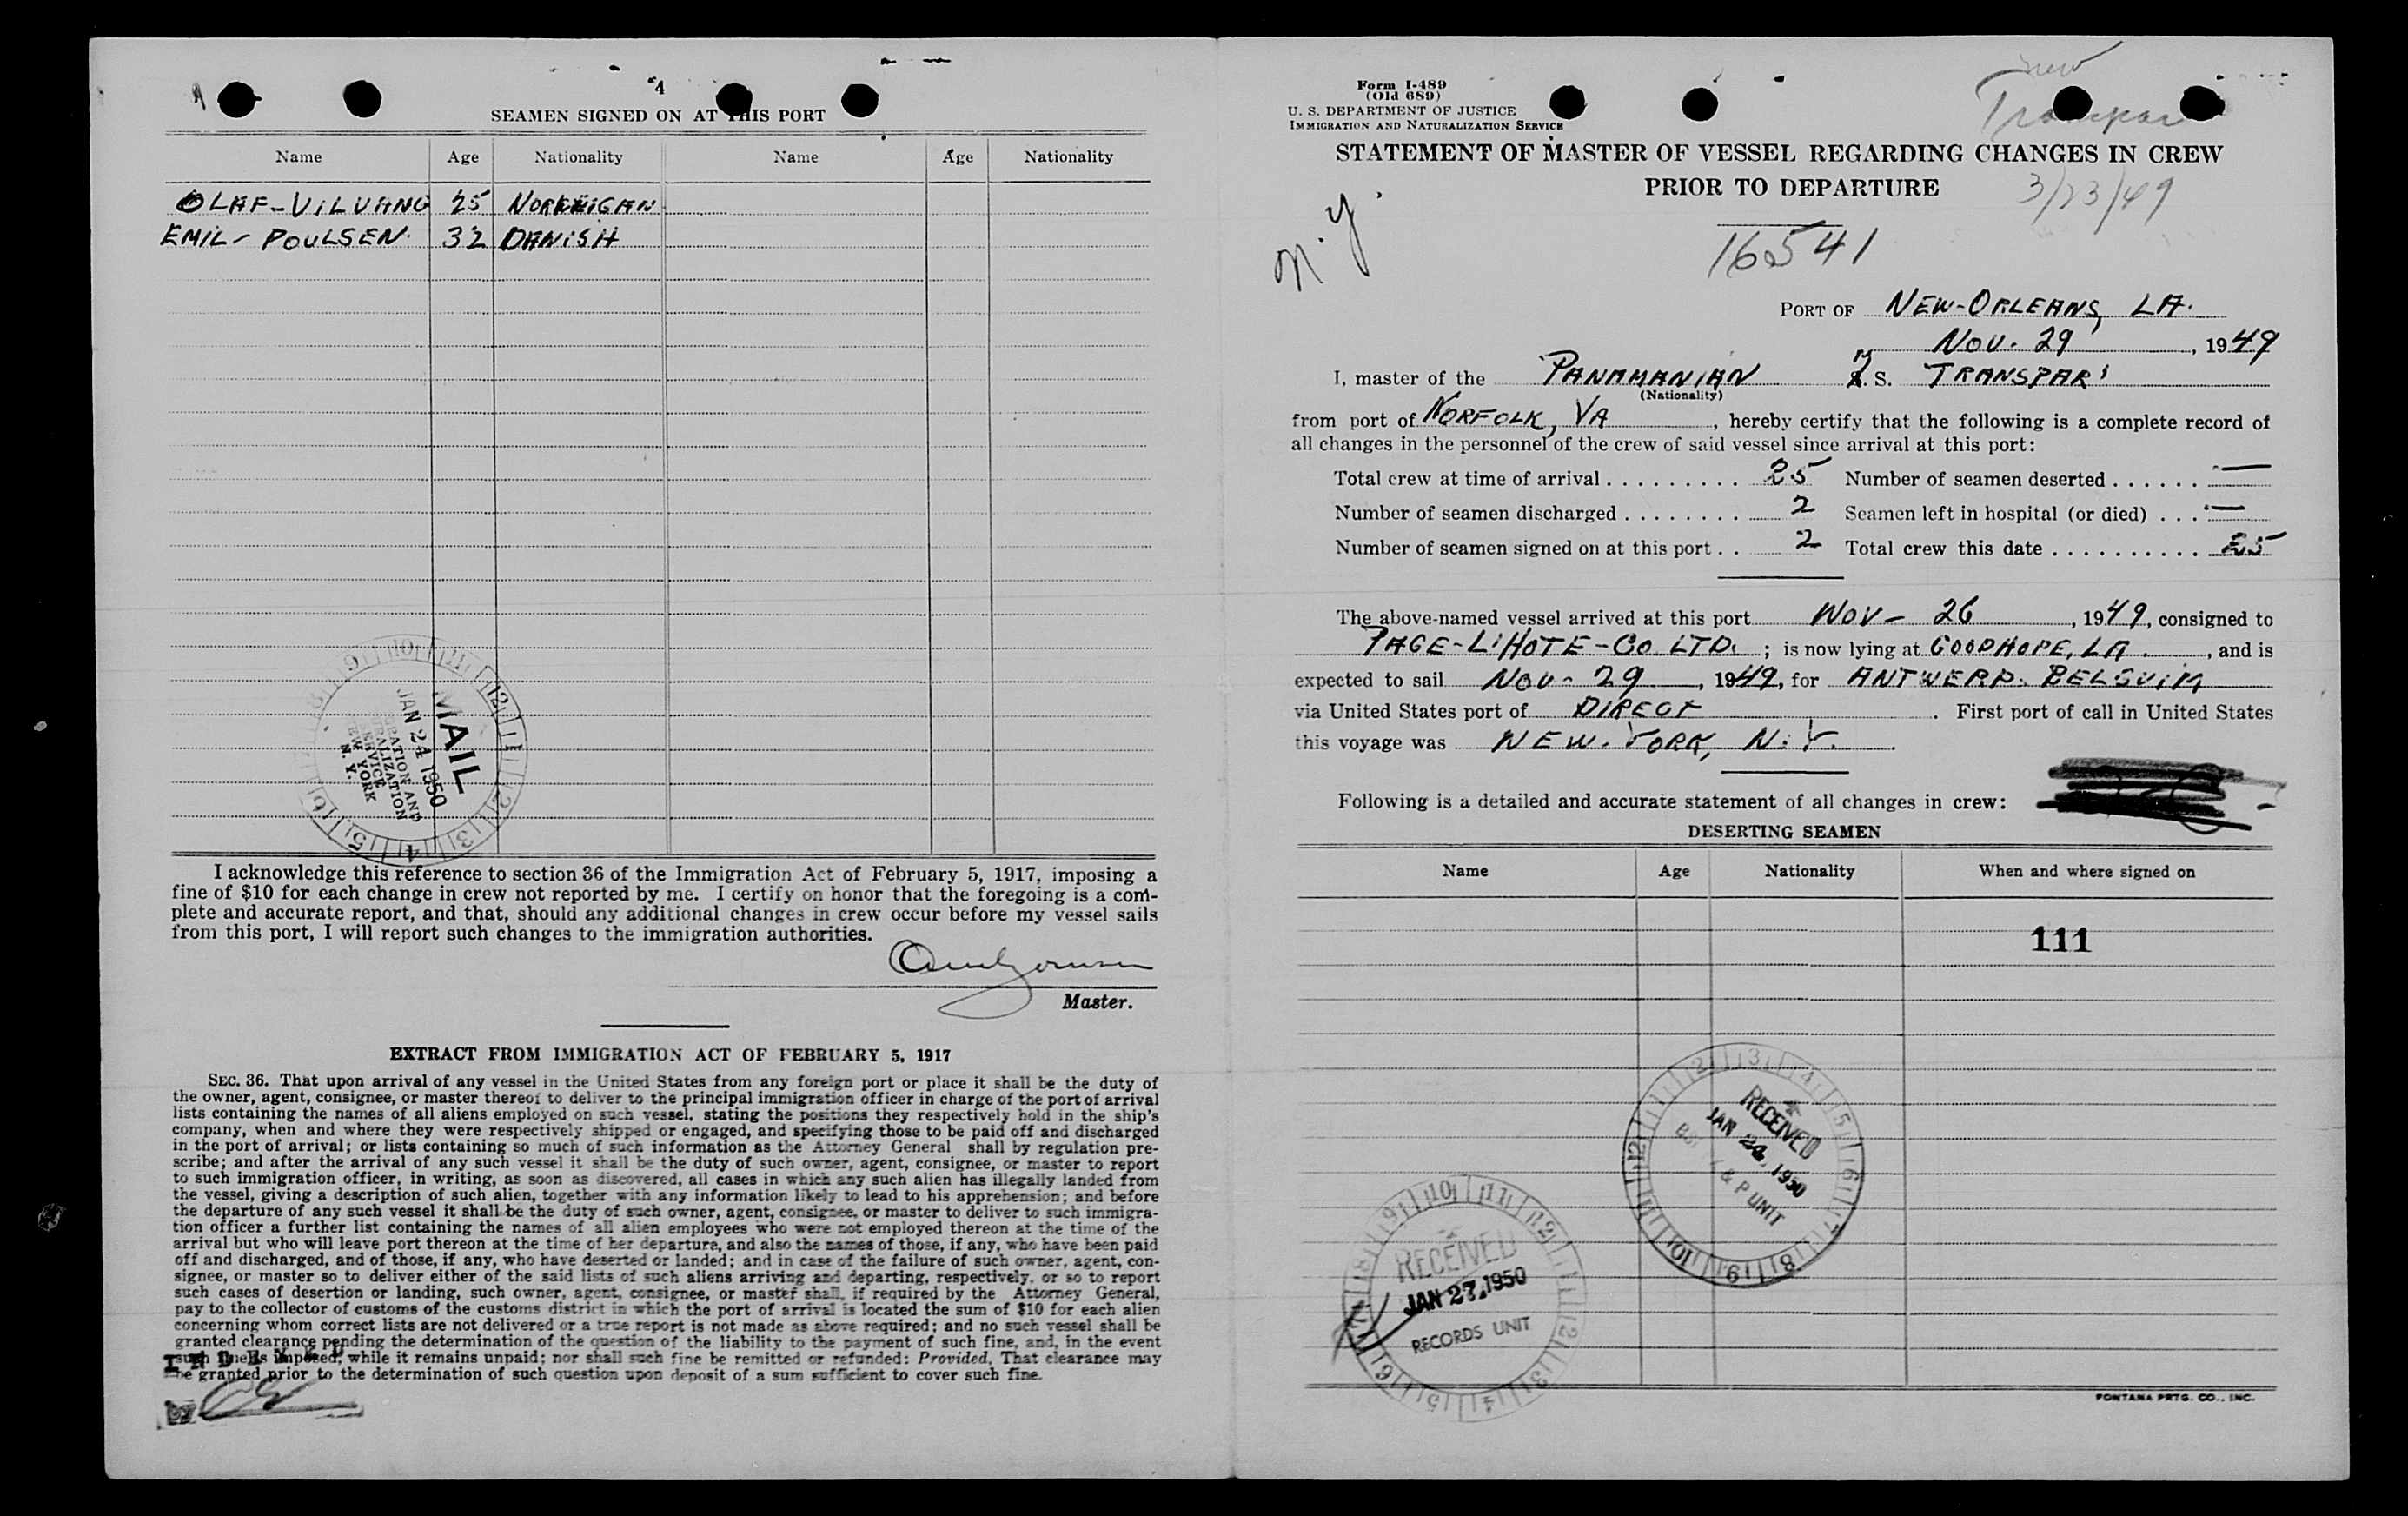 4
SEAMEN SIGNED ON AT THIS PORT
Name Age Nationality Name Age Nationality
OLAF-VILVANG 25 NORWEIGAN
EMIL- POULSEN. 32 DANISH
MAIL
JAN 24 1950
NEW YORK
N. Y.
I acknowledge this reference to section 36 of the Immigration Act of February 5, 1917, imposing a
fine of $10 for each change in crew not reported by me. I certify on honor that the foregoing is a com-
plete and accurate report, and that, should any additional changes in crew occur before my vessel sails
from this port, I will report such changes to the immigration authorities.
Master.
EXTRACT FROM IMMIGRATION ACT OF FEBRUARY 5, 1917
SEC. 36. That upon arrival of any vessel in the United States from any foreign port or place it shall be the duty of
the owner, agent, consignee, or master thereof to deliver to the principal immigration officer in charge of the port of arrival
lists containing the names of all aliens employed on such vessel, stating the positions they respectively hold in the ship's
company, when and where they were respectively shipped or engaged, and specifying those to be paid off and discharged
in the port of arrival; or lists containing so much of such information as the Attorney General shall by regulation pre-
scribe; and after the arrival of any such vessel it shall be the duty of such owner, agent, consignee, or master to report
to such immigration officer, in writing, as soon as discovered, all cases in which any such alien has illegally landed from
the vessel, giving a description of such alien, together with any information likely to lead to his apprehension; and before
the departure of any such vessel it shall be the duty of such owner, agent, consignee, or master to deliver to such immigra-
tion officer a further list containing the names of all alien employees who were not employed thereon at the time of the
arrival but who will leave port thereon at the time of her departure, and also the names of those, if any, who have been paid
off and discharged, and of those, if any, who have deserted or landed; and in case of the failure of such owner, agent, con-
signee, or master so to deliver either of the said lists of such aliens arriving and departing, respectively, or so to report
such cases of desertion or landing, such owner, agent, consignee, or master shall, if required by the Attorney General,
pay to the collector of customs of the customs district in which the port of arrival is located the sum of $10 for each alien
concerning whom correct lists are not delivered or a true report is not made as above required; and no such vessel shall be
granted clearance pending the determination of the question of the liability to the payment of such fine, and, in the event
such fine is imposed, while it remains unpaid; nor shall such fine be remitted or refunded: Provided, That clearance may
be granted prior to the determination of such question upon deposit of a sum sufficient to cover such fine.
INDEXED
Form I-489
(Old 689)
U. S. DEPARTMENT OF JUSTICE
IMMIGRATION AND NATURALIZATION SERVICE
new
STATEMENT OF MASTER OF VESSEL REGARDING CHANGES IN CREW
PRIOR TO DEPARTURE
3/23/49
N.Y.
16541
PORT OF NEW-ORLEANS, LA.
NOV. 29, 1949
I, master of the PANAMANIAN M. S. TRANSPAR
(Nationality)
from port of NORFOLK, VA, hereby certify that the following is a complete record of
all changes in the personnel of the crew of said vessel since arrival at this port:
Total crew at time of arrival . . . . . . . . . 25 Number of seamen deserted . . . . . . —
Number of seamen discharged . . . . . . . . 2 Seamen left in hospital (or died) . . . —
Number of seamen signed on at this port . . 2 Total crew this date . . . . . . . . . . 25
The above-named vessel arrived at this port NOV- 26, 1949, consigned to
PAGE-L'HOTE-CO LTD. ; is now lying at GOODHOPE, LA., and is
expected to sail NOV- 29, 1949, for ANTWERP. BELGUIM
via United States port of DIRECT. First port of call in United States
this voyage was NEW. YORK, N.Y.
Following is a detailed and accurate statement of all changes in crew:
DESERTING SEAMEN
Name Age Nationality When and where signed on
111
RECEIVED
JAN 24 1950
& P UNIT
RECEIVED
JAN 27 1950
RECORDS UNIT
FONTANA PRTG. CO., INC.